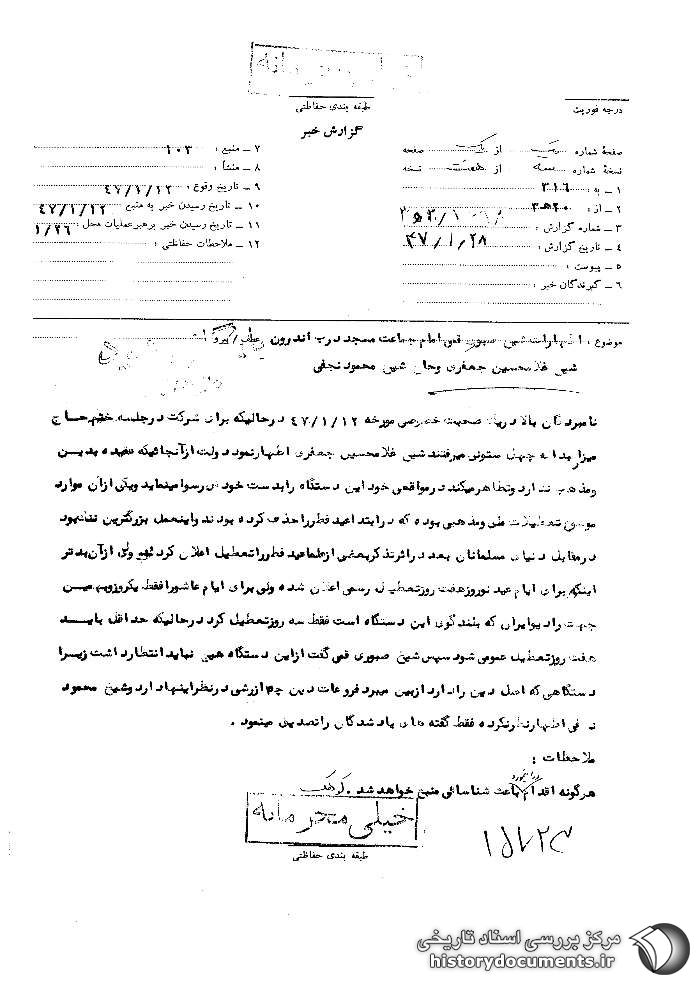 طبقه بندی حفاظتی
درجه فوریت
گزارش خبر
صفحهٔ شماره یک از یک صفحه
نسخهٔ شماره سه از هشت نسخه
۱ ـ به : ۳۱۶
۲ ـ از : ۲۰ ه ۳
۳ ـ شماره گزارش :
۴ ـ تاریخ گزارش : ۴۷/۱/۲۸
۵ ـ پیوست :
۶ ـ گیرندگان خبر :
۷ ـ منبع : ۱۰۳
۸ ـ منشأ :
۹ ـ تاریخ وقوع : ۴۷/۱/۱۲
۱۰ ـ تاریخ رسیدن خبر به منبع : ۴۷/۱/۱۲
۱۱ ـ تاریخ رسیدن خبر برهبر عملیات محل : ۱/۲۶
۱۲ ـ ملاحظات حفاظتی :
موضوع : اظهارات شیخ صبوری قمی امام جماعت مسجد درب اندرون
شیخ غلامحسین جعفری و حاج شیخ محمود نجفی
نامبردگان بالا در یک صحبت خصوصی مورخه ۴۷/۱/۱۲ در حالیکه برای شرکت در جلسه ختم حاج
میرزا عبداله چهل ستونی میرفتند شیخ غلامحسین جعفری اظهار نمود دولت از آنجائیکه عقیده بدین
و مذهب ندارد و تظاهر میکند در مواقعی خود این دستگاه را بدست خودش رسوا مینماید و یکی از آن موارد
موضوع تعطیلات ملی و مذهبی بوده که در ابتدا عید فطر را حذف کرده بودند و اینعمل بزرگترین
در مقابل دنیای مسلمانان بعد در اثر تذکر بعضی از علما عید فطر را تعطیل اعلان کرد ولی از آن بدتر
اینکه برای ایام عید نوروز هفت روز تعطیل رسمی اعلان شده ولی برای ایام عاشورا فقط یکروز و بهمین
جهت رادیو ایران که بلندگوی این دستگاه است فقط سه روز تعطیل کرد در حالیکه حداقل بایـد
هفت روز تعطیل عمومی شود سپس شیخ صبوری قمی گفت از این دستگاه هیچ نباید انتظار داشت زیـرا
دستگاهی که اصل دین را دارد از بین میبرد فروعات دین چه ارزشی در نظر اینها دارد و شیخ محمود
نجفی اظهار نظر نکرده فقط گفته های یاد شدگان را تصدیق مینمود .
ملاحظات :
هرگونه اقدام باعث شناسائی منبع خواهد شد .
خیلی محرمانه
طبقه بندی حفاظتی
مرکز بررسی اسناد تاریخی
historydocuments.ir